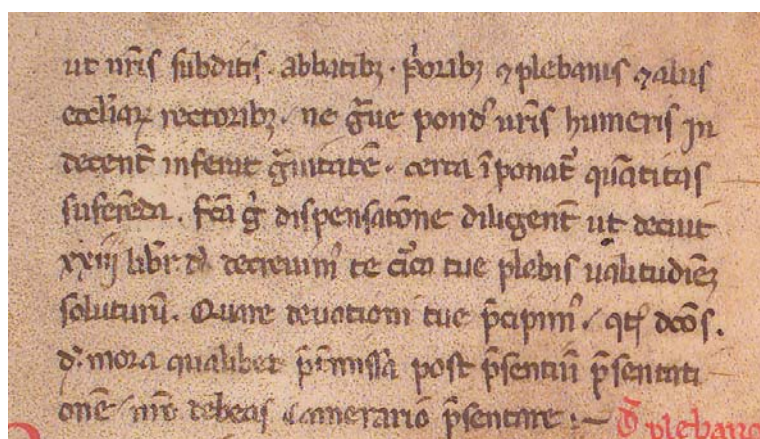 ut nr̄is subditis. abbatibꝫ. p̓oribꝫ ⁊ plebanis ⁊ aliis
eccl̄iaꝝ rectoribꝫ. ne g̃ue pond᷒ ur̄is humeris in
decent̄ inferat g̃uitatē. certa īponat᷑ quātitas
suferēda. fc̄a g̊ dispensatōne diligent̄ ut decuit
xxiij libr̄. d̓ decreuim᷒ te circa tue plebis ualitudinē
soluturū. Quare deuotioni tue p̄cipim᷒. qt᷒ dc̄os.
d̓. mora qualibet p̄t̓missa post p̄sentiū p̄sentati
onē nr̄o debeas camerario p̄sentare :~ plebano